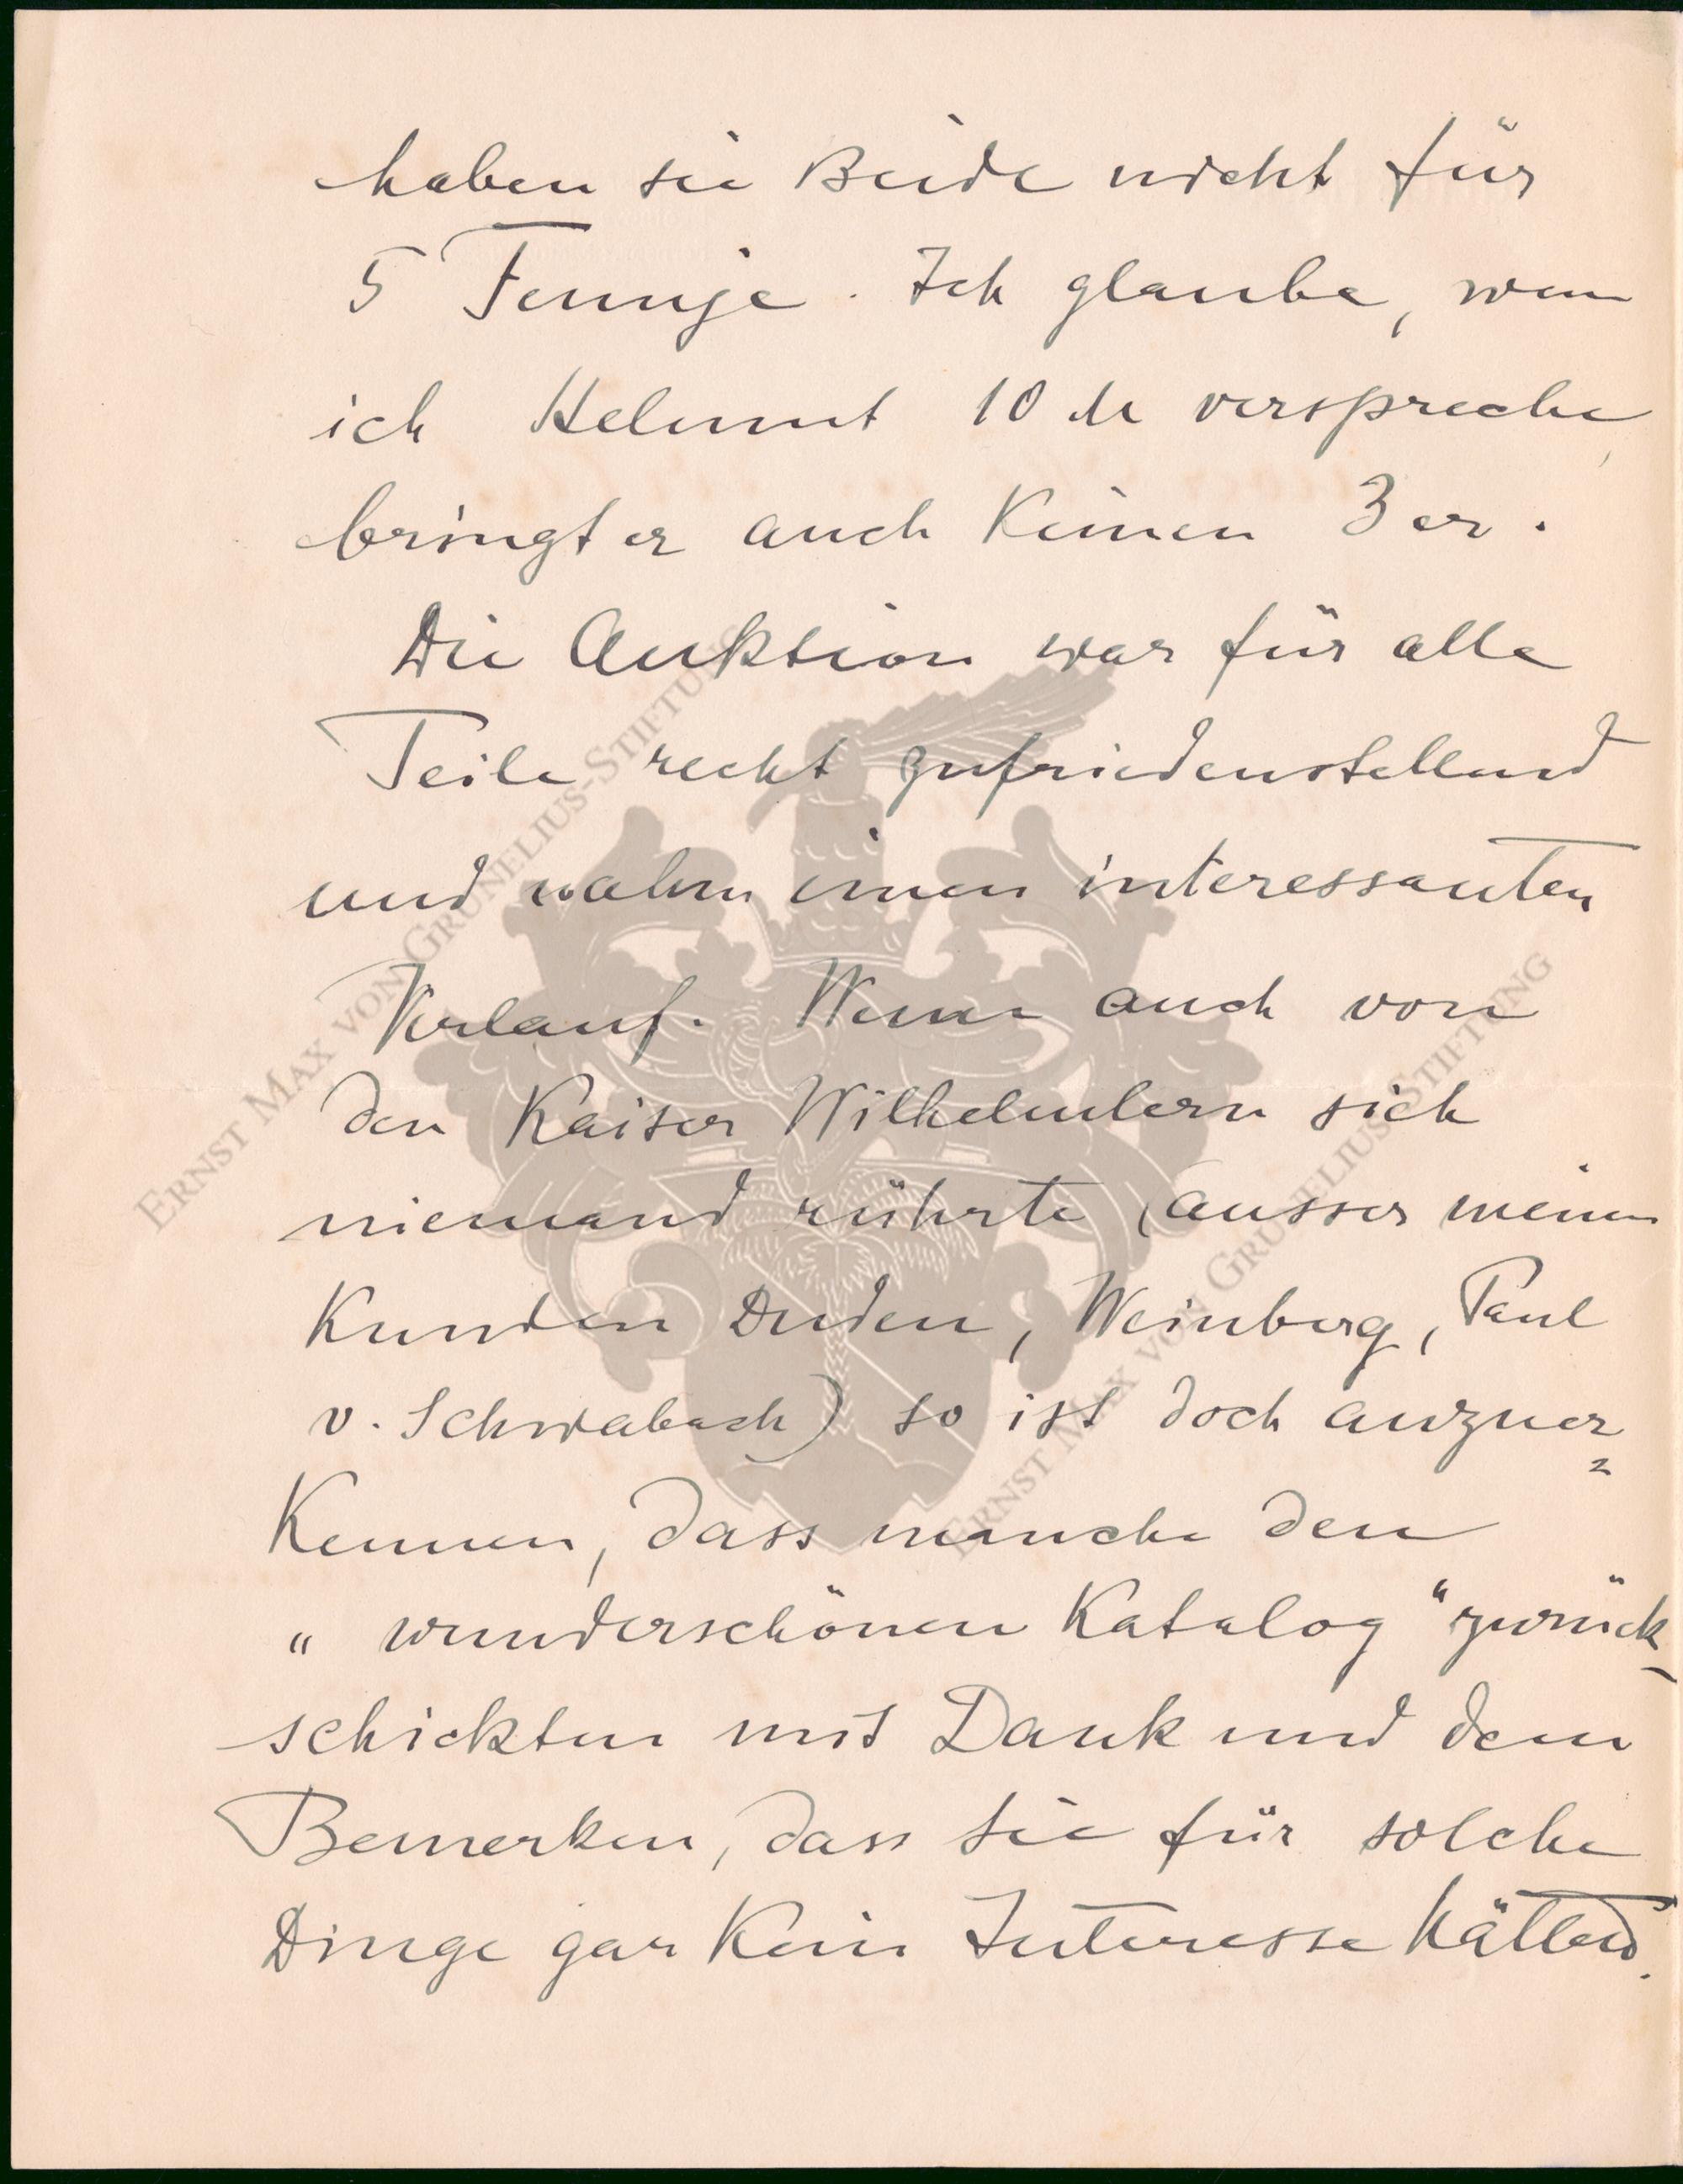 haben sie Beide nicht für
5 Fennje. Ich glaube, wenn
ich Helmut 10 M verspreche,
bringt er auch Keinen 3er.
Die Auktion war für alle
Teile recht zufriedenstellend
und nahm einen interessanten
Verlauf. Wenn auch von
den Kaiser Wilhelmlern sich
niemand rührte (ausser meinen
Kunden Duden, Weinberg, Paul
v. Schwabach) so ist doch anzuer=
Kennen, dass manche den
"wunderschönen Katalog" zurück-
schickten mit Dank und dem
Bemerken, dass sie für solche
Dinge gar Kein Interesse hätten.
ERNST MAX VON GRUNELIUS-STIFTUNG
ERNST MAX VON GRUNELIUS-STIFTUNG